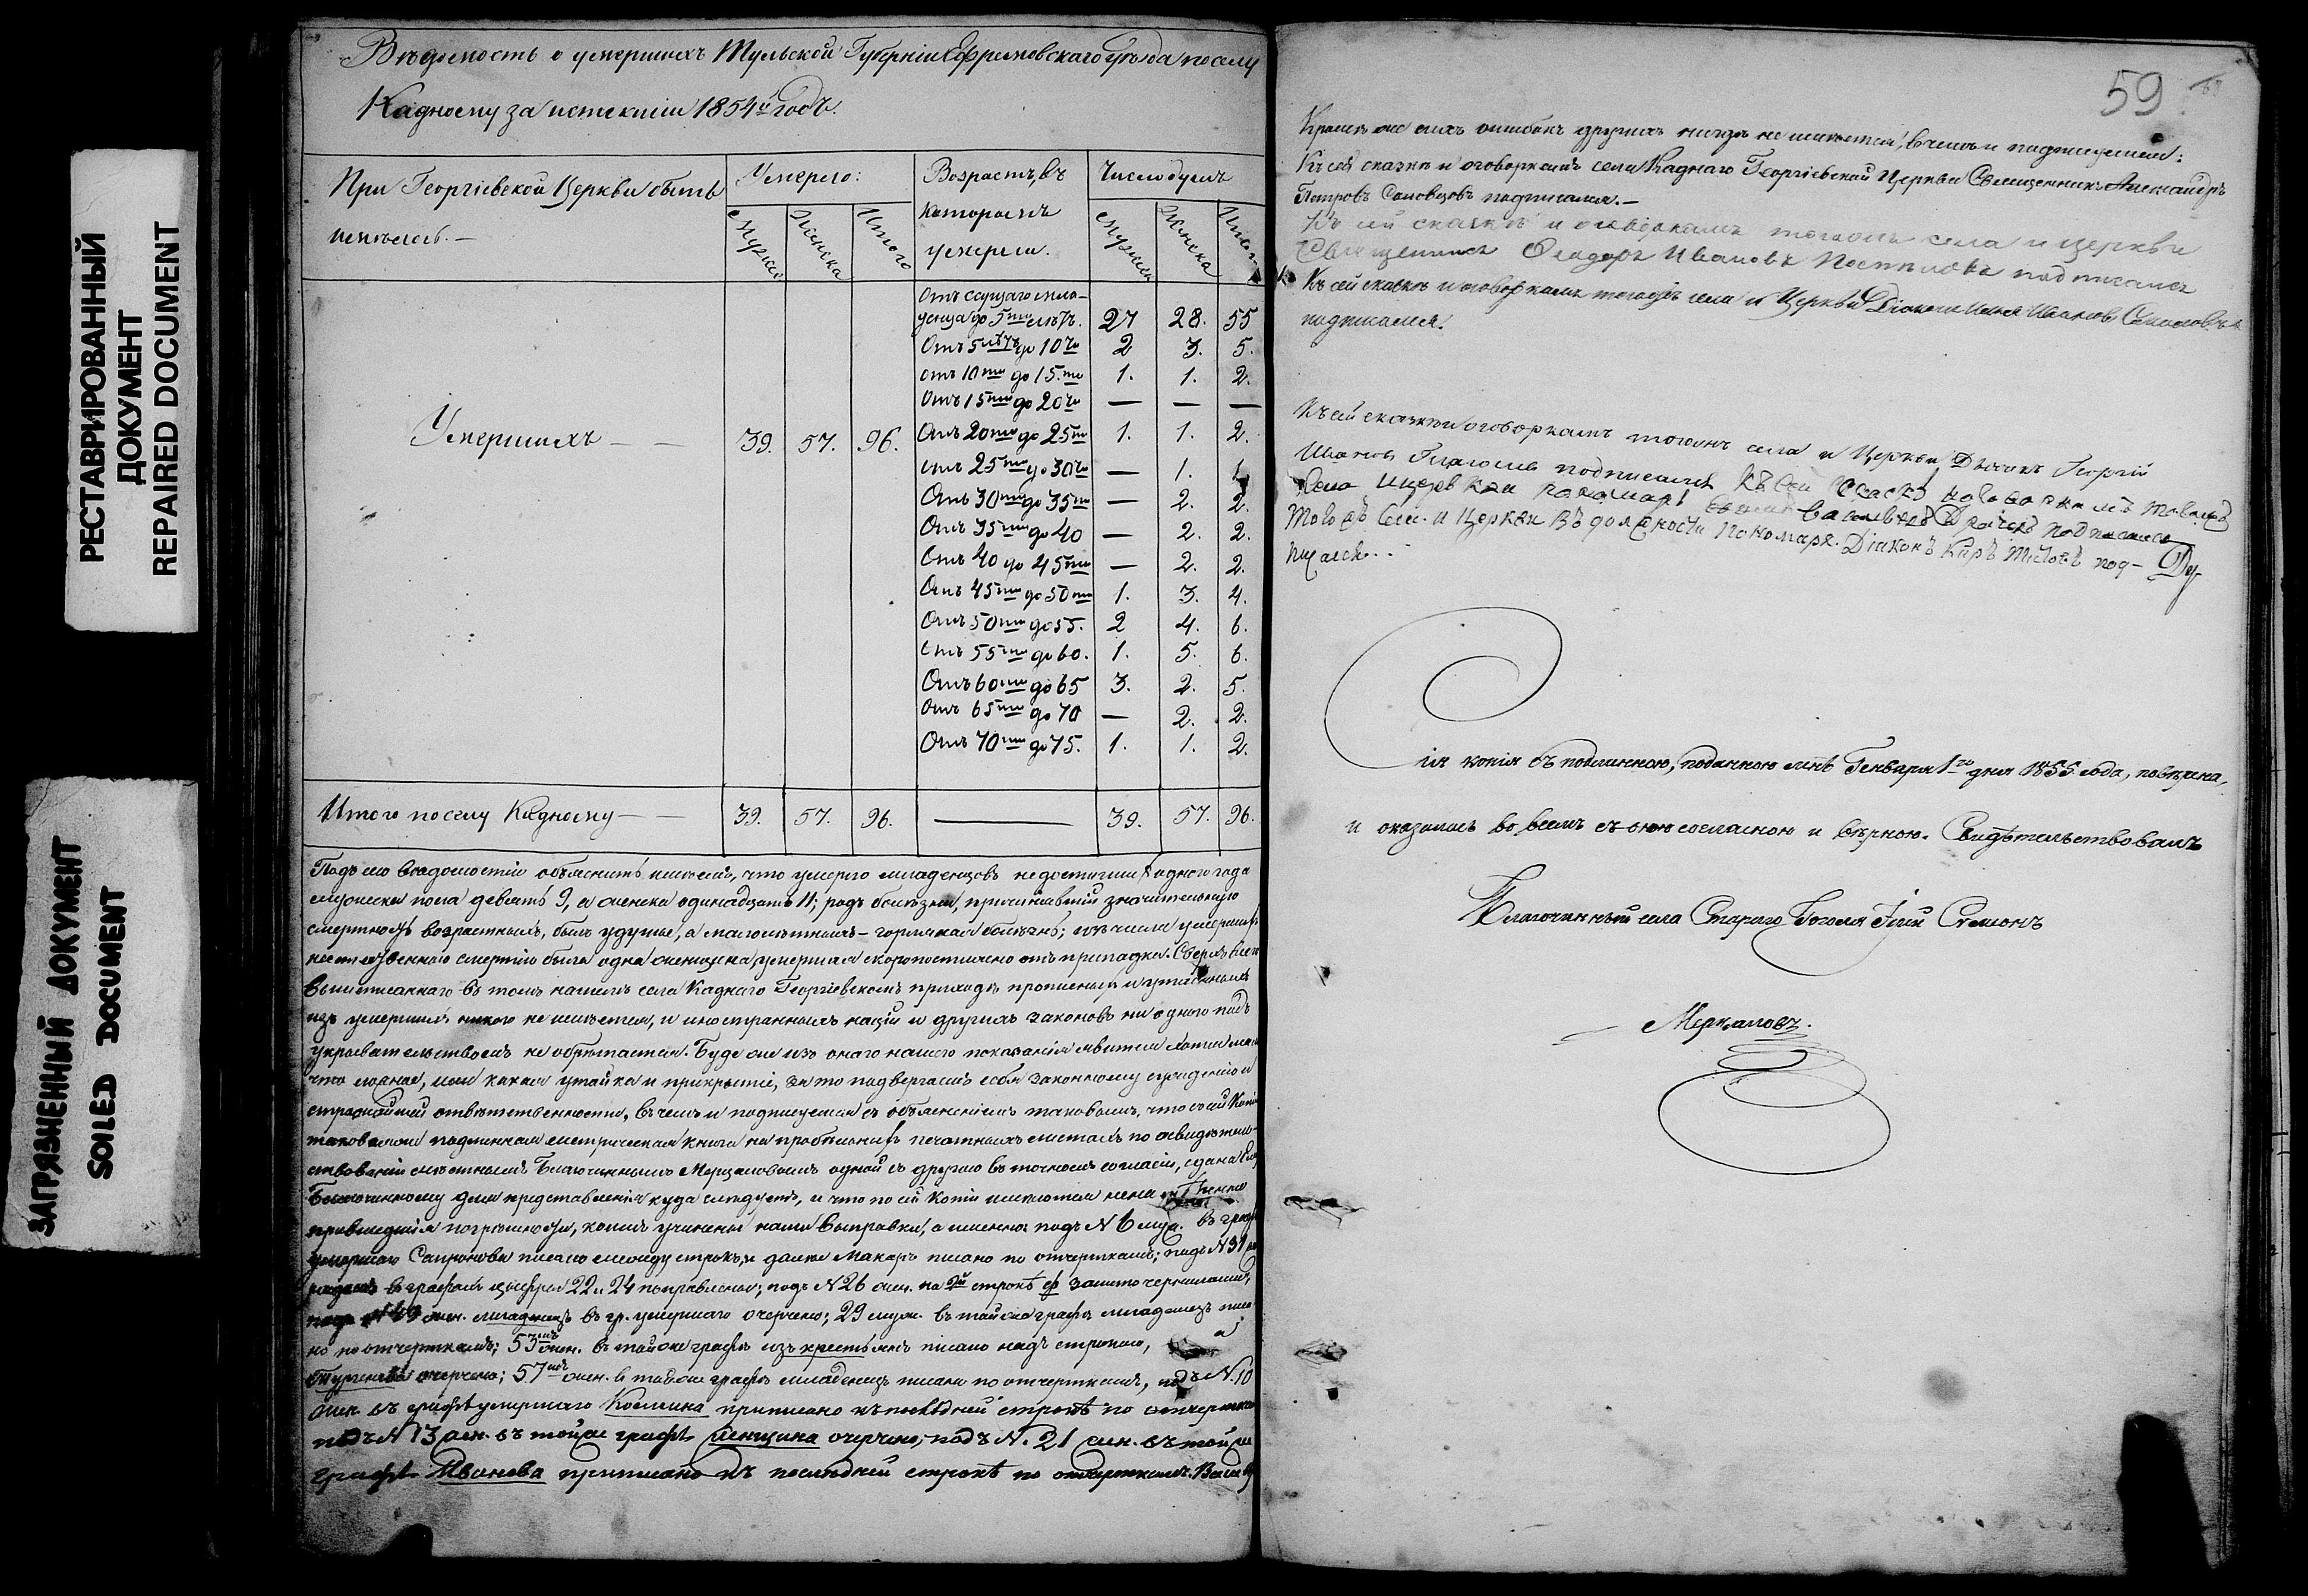 РЕСТАВРИРОВАННЫЙ
ДОКУМЕНТ
REPAIRED DOCUMENT
ЗАГРЯЗНЕННЫЙ ДОКУМЕНТ
SOILED DOCUMENT
Вѣдомость о умершихъ Тульской Губерніи Ефремовскаго уѣзда по селу
Кадному за истекшій 1854й годъ.
При Георгіевской Церкви объяв-
Умерло:
Мужска
Женска
Итого
Возрастъ, въ
которомъ
умерли.
Число душъ
Мужска
Женска
Итого
Отъ сущаго мла-
денца до 5ти лѣтъ. 27 28. 55
Отъ 5 лѣтъ до 10ти 2 3. 5.
отъ 10ти до 15.ти 1. 1. 2.
Отъ 15ти до 20ти — — —
Умершихъ — — 39. 57. 96.
Отъ 20ти до 25ти 1. 1. 2.
отъ 25ти до 30ти — 1. 1.
Отъ 30ти до 35ти — 2. 2.
Отъ 35ти до 40 — 2. 2.
Отъ 40 до 45ти — 2. 2.
Отъ 45ти до 50ти 1. 3. 4.
Отъ 50ти до 55. 2 4. 6.
отъ 55ти до 60. 1. 5. 6.
Отъ 60ти до 65 3. 2. 5.
Отъ 65ти до 70 — 2. 2.
Отъ 70ти до 75. 1. 1. 2.
Итого по селу Кадному — — 39. 57. 96. — 39. 57. 96.
Подъ сею вѣдомостію объяснить имѣемъ, что умерло младенцовъ недостигшихъ одного года
мужеска пола девять 9, а женска одинадцать 11; родъ болѣзни, причинившій значительную
смертность возрастныхъ, былъ удушье, а малолѣтныхъ – горляная болѣзнь; изъ числа умершихъ
неестественною смертію была одна женщина, умершая скоропостижно отъ припадка. Сверхъ
вышеписаннаго въ томъ нашемъ села Каднаго Георгіевскомъ приходѣ прописныхъ и утаенныхъ
изъ умершихъ никого не имѣется, и иностранныхъ націй и другихъ законовъ ни одного подъ
укрывательствомъ не обрѣтается. Буде же изъ онаго нашего показанія явится хотя мало
что ложное, или какая утайка и прикрытіе, за то подвергаемъ себя законному сужденію и
отвѣтственности, въ чемъ и подписуемся съ объясненіемъ таковымъ, что съ сей Копіи
таковая подлинная метрическая книга на печатныхъ листахъ по освидѣтель-
ствованіи мѣстнымъ Благочиннымъ Мерцаловымъ одной съ другою въ точномъ согласіи, сдана
Благочинному для представленія куда слѣдуетъ, и что по сей Копіи имѣются
погрѣшности, коимъ учинены нами выправки, а именно: подъ N 6 муж. въ графѣ
умершаго писано между строкъ, и далѣе Макаръ писано по отчерткамъ; подъ N 31
въ графахъ цыфры 22 и 24 поправлены; подъ N 26 жен. на 2й строкѣ залито чернилами;
N 49 жен. младенецъ въ гр. умершаго очерчено; 29 муж. въ той же графѣ младенецъ писа-
но по отчерткамъ; 53мъ жен. въ той же графѣ изъ крестьянъ писано надъ строкою, а
очерчено; 57мъ жен. въ той же графѣ младенецъ писано по отчерткамъ, подъ N. 10
жен. въ графѣ умершаго Козмина приписано къ послѣдней строкѣ по отчерткамъ
подъ N 13 жен. въ той же графѣ женщина очерчено, подъ N. 21 жен. въ той же
графѣ Иванова приписано къ послѣдней строкѣ по отчерткамъ.
59
Кромѣ же сихъ ошибокъ другихъ нигдѣ не имѣется, въ чемъ и подписуемся:
Къ сей сказкѣ и оговоркамъ села Каднаго Георгіевской Церкви Священникъ Александръ
Петровъ подписался. —
Къ сей сказкѣ и оговоркамъ тогожъ села и церкви
Священникъ Ѳеодоръ Ивановъ подписался
Къ сей сказкѣ и оговоркамъ тогожъ села и Церкви Діаконъ Илья Ивановъ
подписался.
Къ сей сказкѣ и оговоркамъ тогожъ села и Церкви Дьячокъ Георгій
Ивановъ Глаголевъ подписался Къ сей сказкѣ и оговоркамъ тогожъ
села и церкви пономарь Васильевъ подписался
Тогожъ села и Церкви въ должности Пономаря Діаконъ Киръ Титовъ под-
писался.
Сія копія съ подлинною, поданною мнѣ Генваря 1го дня 1855 года, повѣрена,
и оказалась во всемъ съ оною согласною и вѣрною. Свидѣтельствовалъ
Благочинный села Стараго Гоголя Іерей Симеонъ
Мерцаловъ.